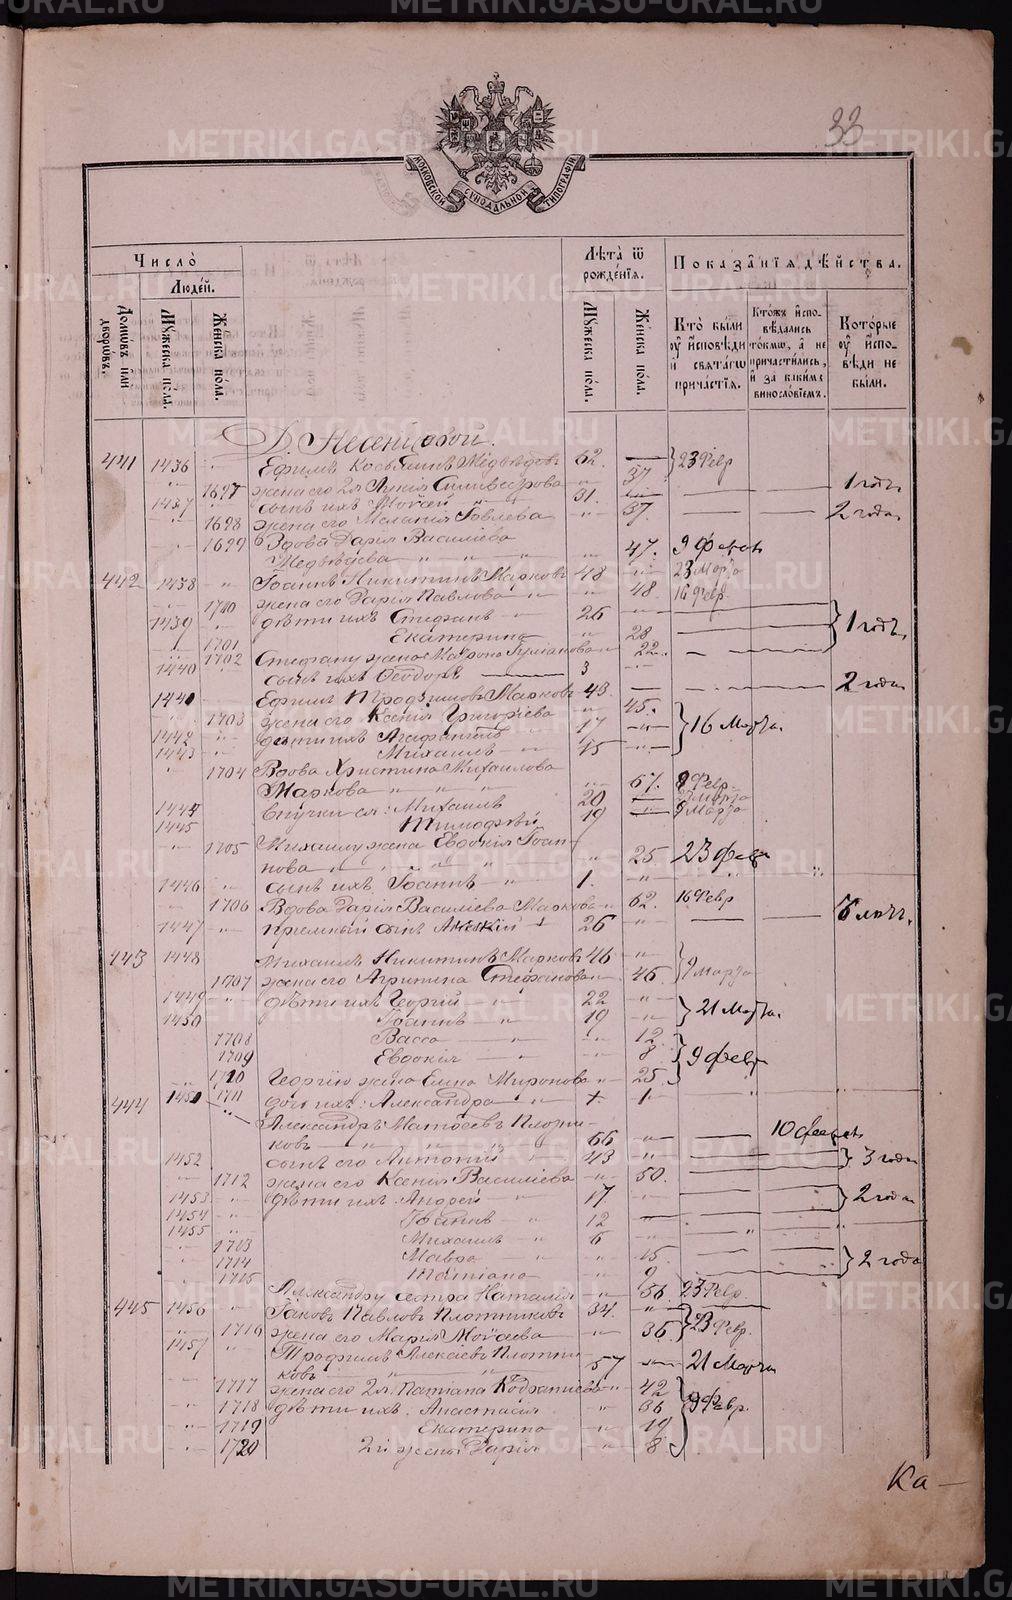 METRIKI.GASO-URAL.RU
33
МОСКОВСКОЙ СѴНОДАЛЬНОЙ ТИПОГРАФІИ
Число̀
Людей.
Домѡвъ или дворѡвъ.
Мꙋжеска пола.
Женска пола.
Лѣта ѿ рожденїѧ.
Мꙋжеска пола.
Женска пола.
Показанїѧ дѣйства.
Кто были ᲂу исповѣди и свѧтагѡ причастїѧ.
Ктожъ исповѣдались токмѡ, а не причастились, и за какимъ винословїемъ.
Которые ᲂу исповѣди не были.
441 1436 Ефимъ Косьминъ Медвѣдевъ 62. 23 Февр
1697 жена его 2я Лукія Силивестрова 37 1 годъ
1437 сынъ ихъ Моѵсей 31.
1698 жена его Меланія 37. 2 года
1699 Вдова Дарія Василіева
Медвѣдева 47. 9 Февр
442 1438 Іоаннъ Никитинъ Марковъ 48 23 Марта
1700 жена его Дарія Павлова 48. 16 Февр.
1439 дѣти ихъ Стефанъ 26
1701 Екатерина 28 1 годъ.
1702 Стефану жена Матрона 22.
1440 сынъ ихъ Ѳеодоръ 3
1441 Ефимъ Трофимовъ Марковъ 43. 2 года
1703 жена его Ксенія Григоріева 45.
1442 дѣти ихъ Агафангелъ 17 16 Марта.
1443 Михаилъ 15
1704 Вдова Христина Михаилова
Маркова 67. 9 Февр.
1444 внучки ея: Михаилъ 20 9 Марта
1445 Тимофей 19 9 Марта
1705 Михаилу жена Евдокія Іоан-
нова 25. 23 февр
1446 сынъ ихъ Іоаннъ 1.
1706 Вдова Дарія Василіева Маркова 62. 16 Февр
1447 пріемный сынъ 26 6 лѣтъ.
443 1448 Михаилъ Никитинъ Марковъ 46
1707 жена его Агрипина Стефанова 46. 9 Марта
1449 дѣти ихъ Георгій 22
1450 Іоаннъ 19 21 Марта.
1708 Васса 12.
1709 Евдокія 8 9 февр
1710 Георгію жена Елена Миронова 25.
1711 дочь ихъ: Александра 1
444 1451 Александръ Матѳеевъ Плотни-
ковъ 66 10 февраля
1452 сынъ его Антоній 43 3 года
1712 жена его Ксенія Василіева 50.
1453 дѣти ихъ: Андрей 17 2 года
1454 Іоаннъ 12
1455 Михаилъ 6
1713 Мавра 15. 2 года
1714 Татіана 9
1715 Александру сестра Наталія 56. 23 Февр.
445 1456 Іаковъ Павловъ Плотниковъ 34.
1716 жена его Марія Моѵсеева 36. 23 Февр.
1457 Трофимъ Алексѣевъ Плотни-
ковъ 57 21 Марта
1717 жена его 2я Татіана Кодратіева 42
1718 дѣти ихъ: Анастасія 36 9 Февр.
1719 Екатерина 19
1720 2й жены Дарія 8
Ка-